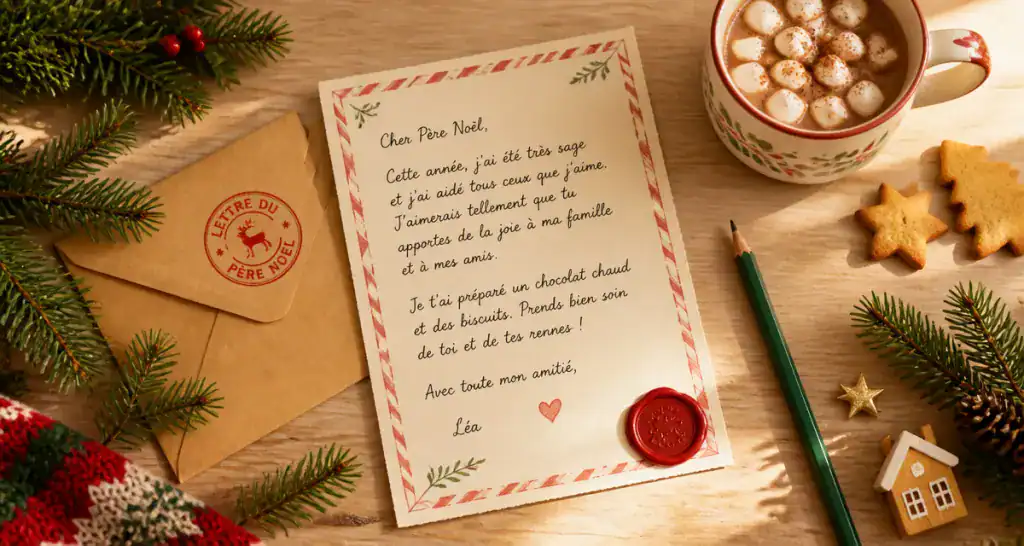 LETTRE DU
PÈRE NOËL
Cher Père Noël,
Cette année, j'ai été très sage
et j'ai aidé tous ceux que j'aime.
J'aimerais tellement que tu
apportes de la joie à ma famille
et à mes amis.
Je t'ai préparé un chocolat chaud
et des biscuits. Prends bien soin
de toi et de tes rennes !
Avec toute mon amitié,
Léa